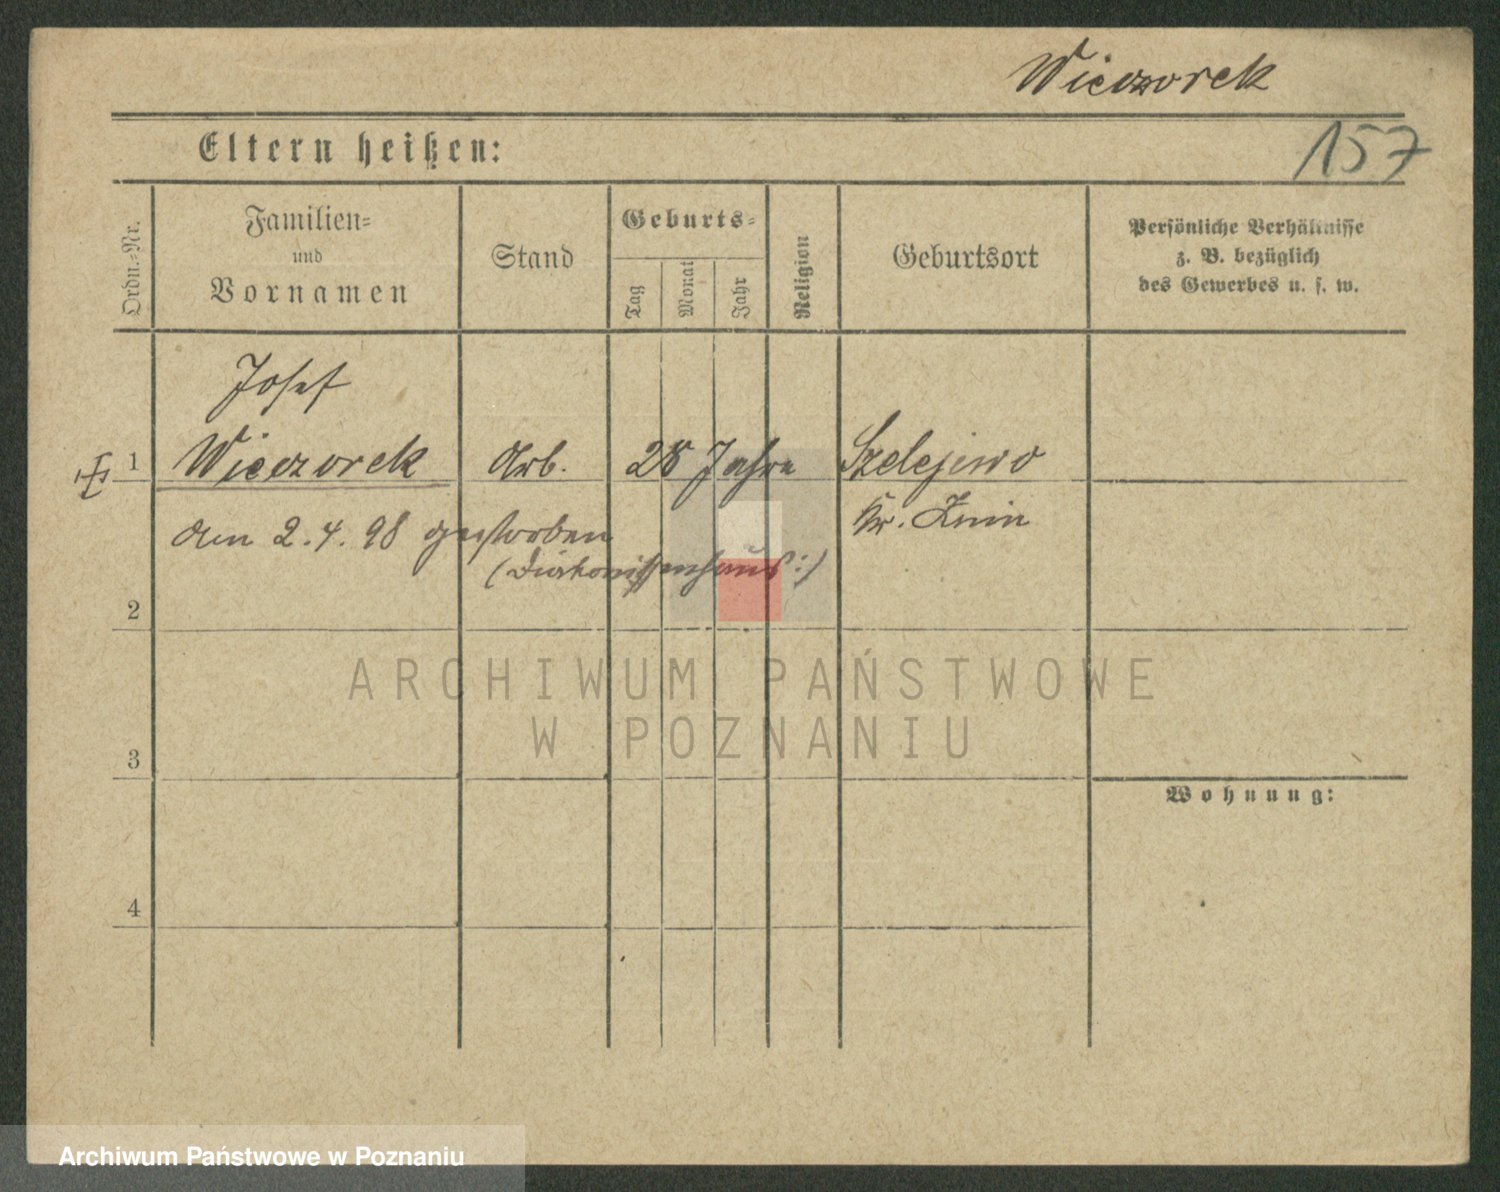 Wieczorek
157
Eltern heißen:
Ordn.-Nr.
Familien-
und
Vornamen
Stand
Geburts-
Tag
Monat
Jahr
Religion
Geburtsort
Persönliche Verhältnisse
z. B. bezüglich
des Gewerbes u. s. w.
Josef
1 Wieczorek Arb. 28 Jahre Szelejewo
Kr. Znin
am 2.4.98 gestorben
(Diakonissenhaus:)
2
ARCHIWUM PAŃSTWOWE
W POZNANIU
3
Wohnung:
4
Archiwum Państwowe w Poznaniu